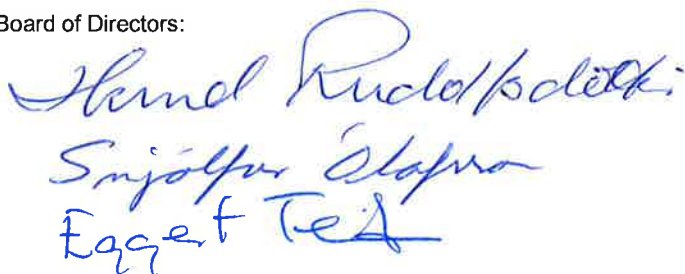 Board of Directors:
Rudolfsdóttir
Snjólfur Ólafsson
Eggert